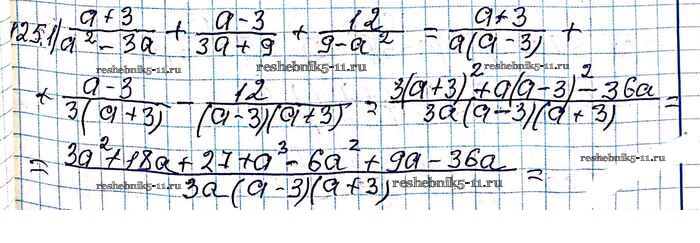 125.1) (a+3)/(a² - 3a) + (a-3)/(3a+9) + 12/(9-a²) = (a+3)/(a(a-3)) +
reshebnik5-11.ru reshebnik5-11.ru
+ (a-3)/(3(a+3)) - 12/((a-3)(a+3)) = (3(a+3)² + a(a-3)² - 36a)/(3a(a-3)(a+3)) =
reshebnik5-11.ru reshebnik5-11.ru
= (3a² + 18a + 27 + a³ - 6a² + 9a - 36a)/(3a(a-3)(a+3)) =
reshebnik5-11.ru reshebnik5-11.ru